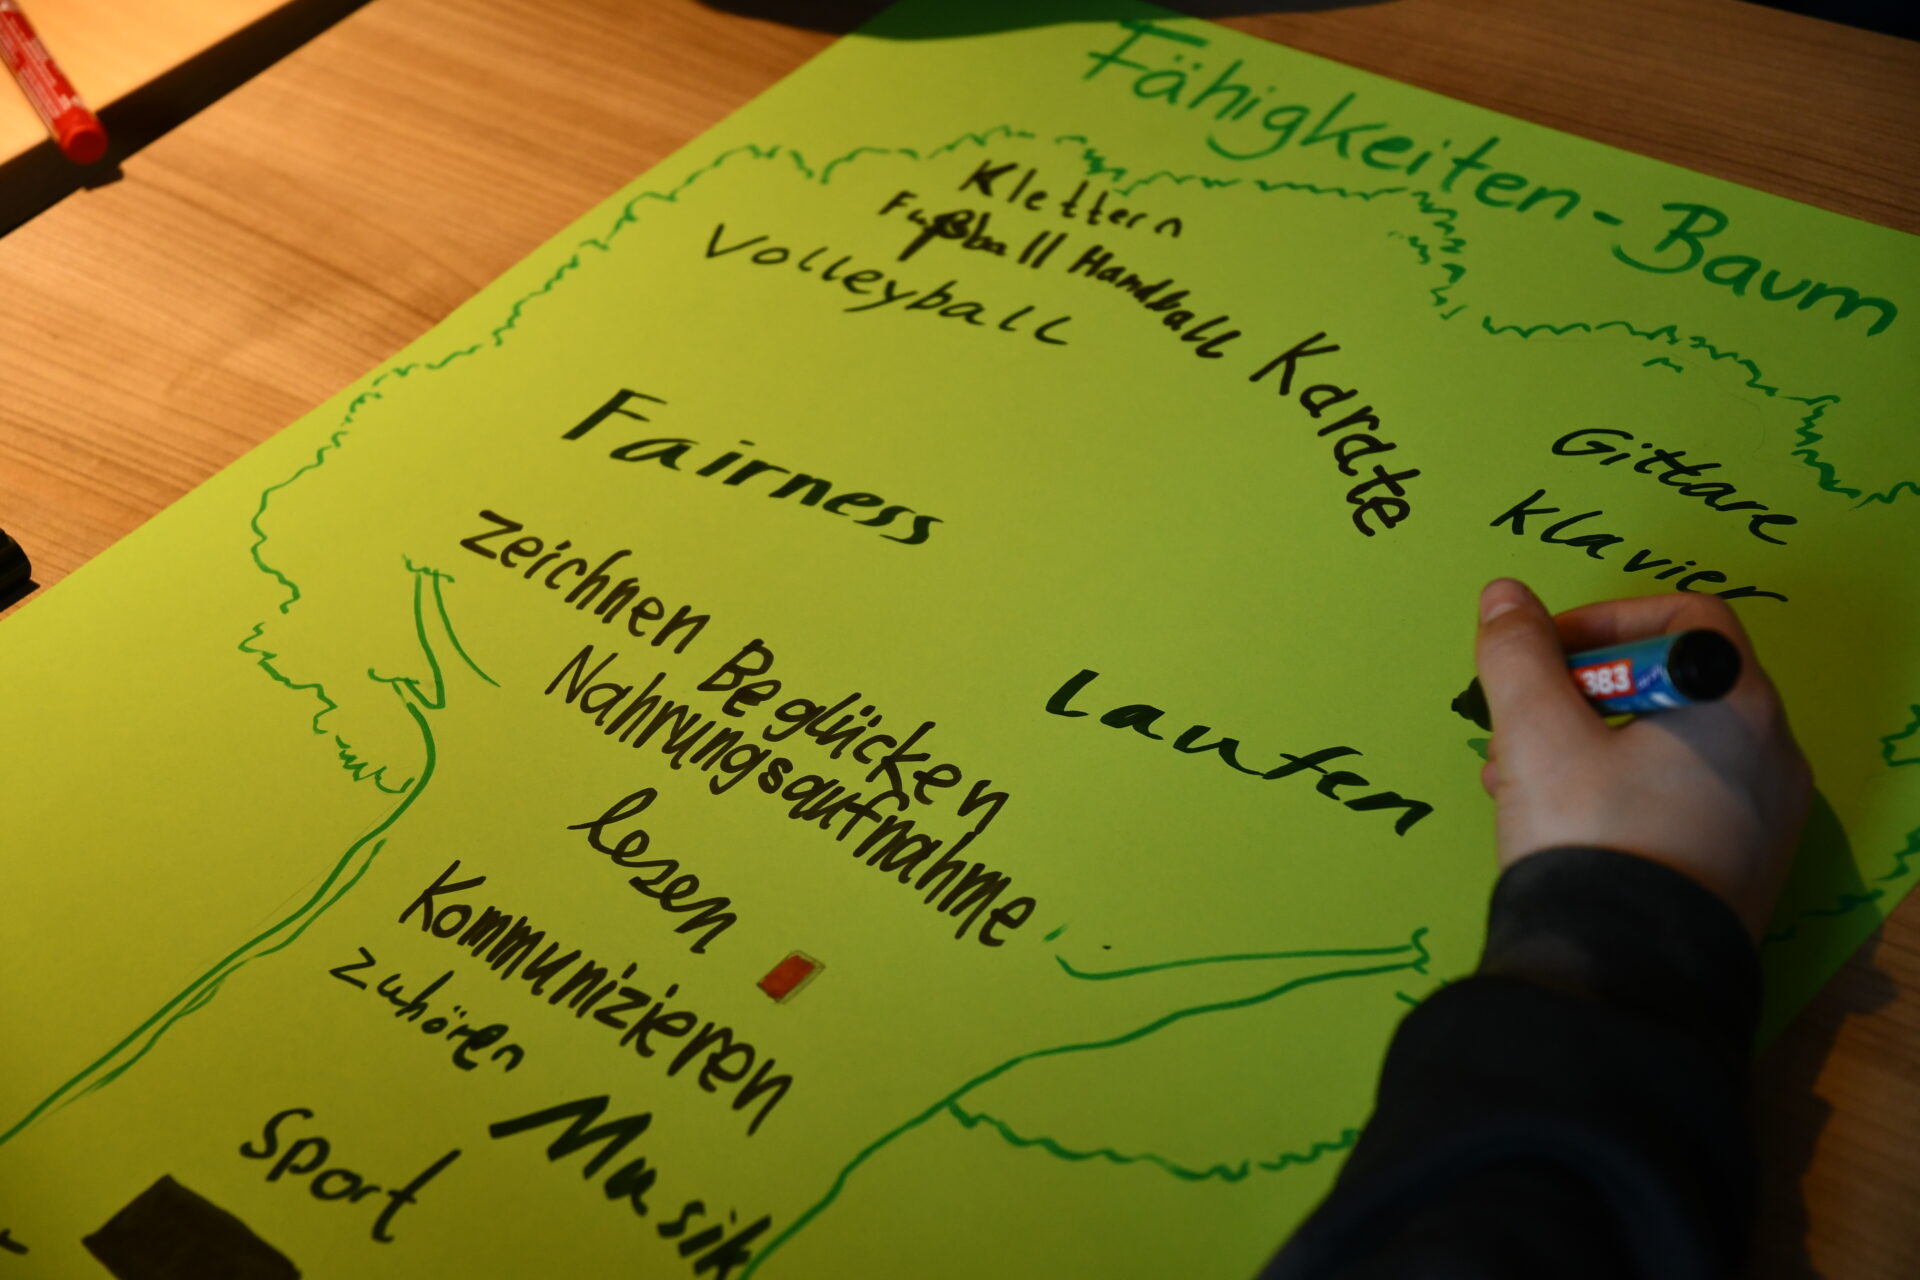 Fähigkeiten-Baum
Klettern
Fußball Handball
Volleyball
Karate
Gittare
Klavier
Fairness
zeichnen Beglücken
Nahrungsaufnahme
Laufen
lesen
Kommunizieren
zuhören
Musik
Sport
383